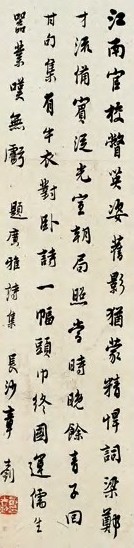 江南官校瞥英姿舊影猶蒙精悍詞梁鄭
才流備賓從光宣朝局照當時晚餘青子回
甘句集有牛衣對臥詩一幅頭巾終國運儒生
器業嘆無虧 題廣雅詩集 長沙章釗